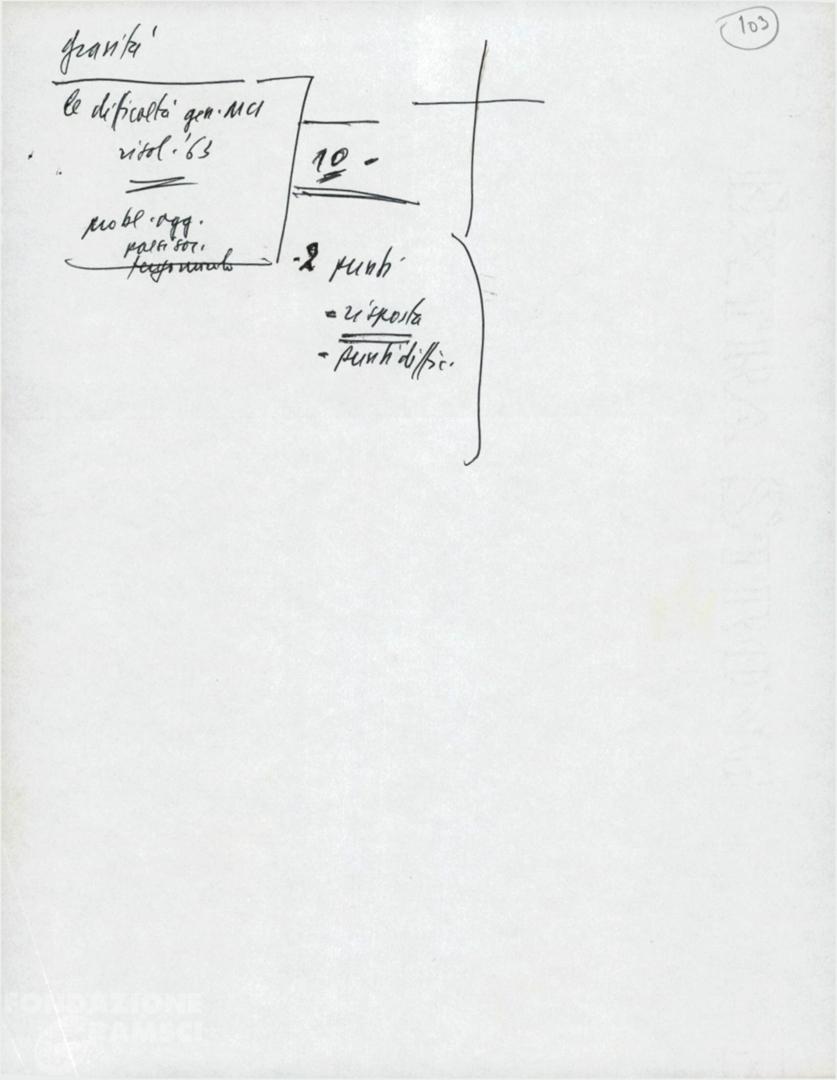 103
gravità
le dificoltà gen. MCI
risol. '63
probl. ogg.
paesi soc.
10 -
- 2 punti
- risposta
- punti diffic.
FONDAZIONE
GRAMSCI